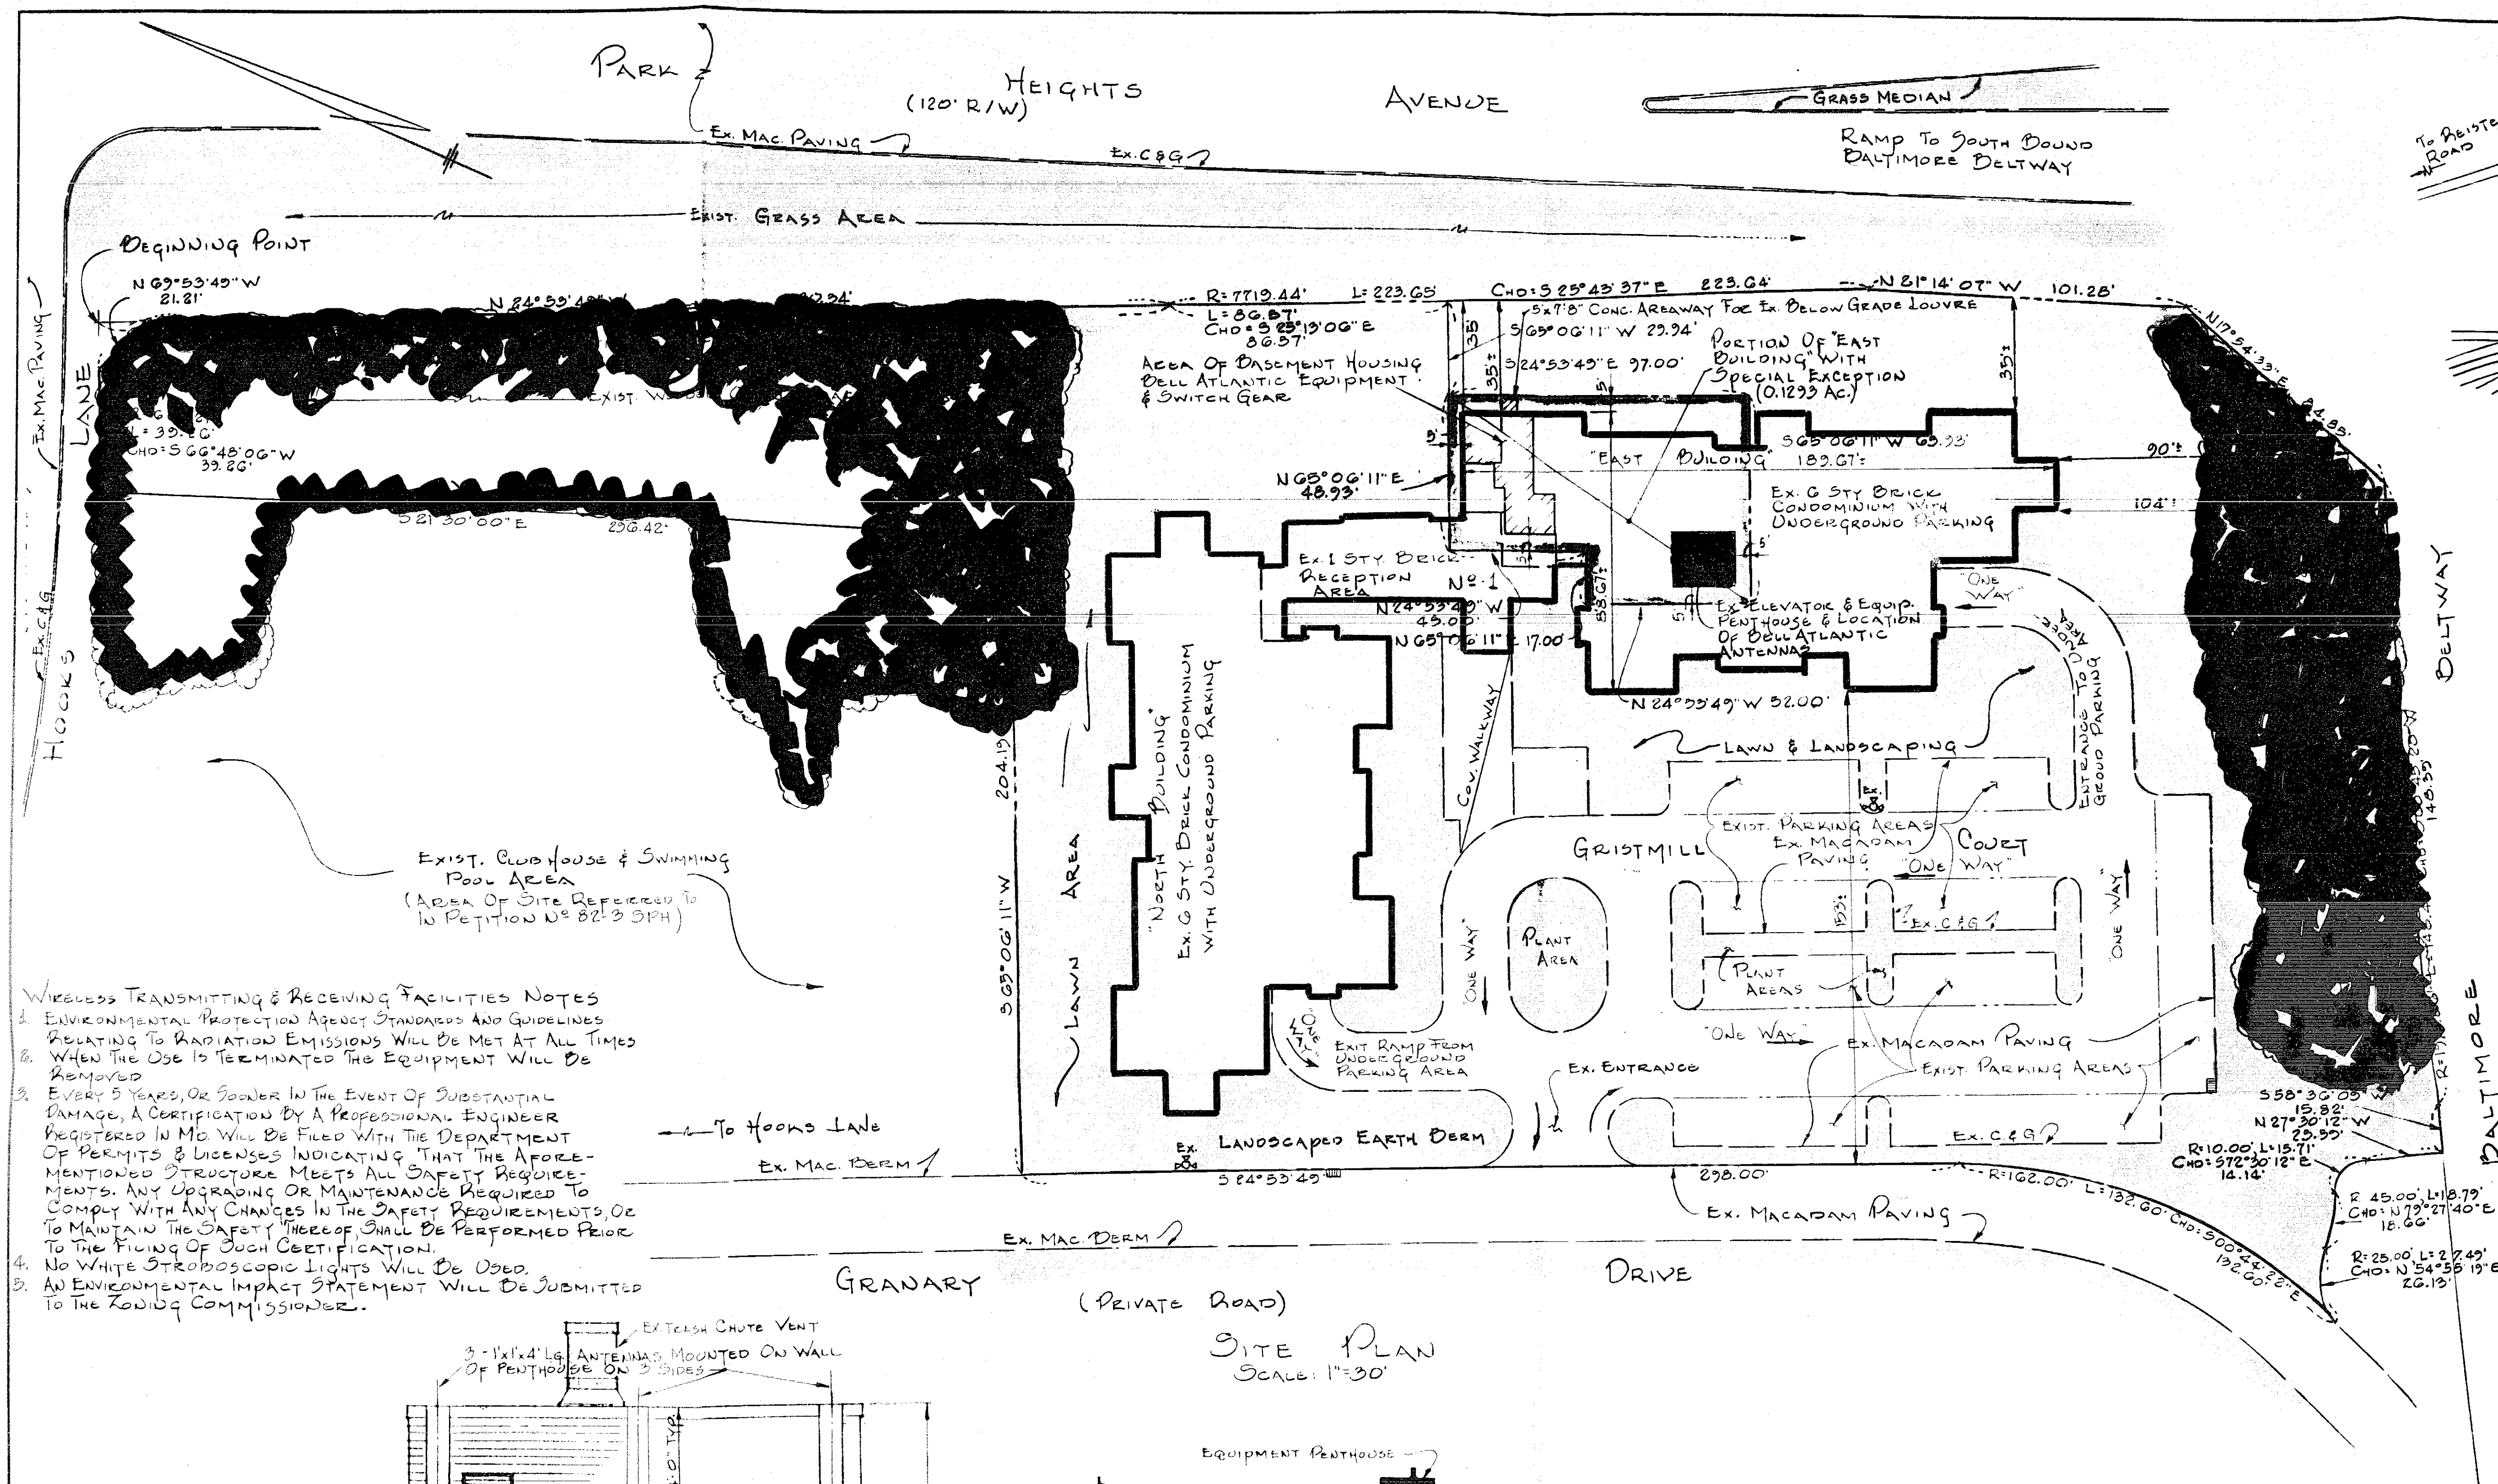 PARK
HEIGHTS
(120' R/W)
AVENUE
GRASS MEDIAN
RAMP TO SOUTH BOUND
BALTIMORE BELTWAY
TO
ROAD
EX. MAC. PAVING
EX. C & G
EXIST. GRASS AREA
BEGINNING POINT
N 69°53'49" W
21.21'
R=7719.44' L=223.65' CHD=S 25°43'37" E 223.64'
N 21°14'07" W 101.28'
L=86.57'
CHD=S 25°13'06" E
86.57'
5'x7'8" CONC. AREAWAY FOR EX. BELOW GRADE LOUVRE
S 65°06'11" W 29.94'
S 24°53'49" E 97.00'
PORTION OF "EAST
BUILDING" WITH
SPECIAL EXCEPTION
(0.1293 AC.)
AREA OF BASEMENT HOUSING
BELL ATLANTIC EQUIPMENT
& SWITCH GEAR
35'
35'±
35'±
5'
N 17°54'33" E
EX. MAC. PAVING
LANE
EX. C & G
HOOKS
CHD=S 66°48'06" W
39.26'
S 21°30'00" E 296.42'
N 65°06'11" E
48.93'
"EAST BUILDING"
S 65°06'11" W 65.93'
189.67'±
90'±
104'±
EX. 6 STY BRICK
CONDOMINIUM WITH
UNDERGROUND PARKING
EX. 1 STY. BRICK
RECEPTION
AREA
Nº 1
N 24°53'49" W
45.00'
N 65°06'11" E 17.00'
5'
EX. ELEVATOR & EQUIP.
PENTHOUSE & LOCATION
OF BELL ATLANTIC
ANTENNAS
N 24°53'49" W 52.00'
"ONE
WAY"
ENTRANCE TO UNDER
GROUND PARKING
AREA
BELTWAY
BALTIMORE
LAWN & LANDSCAPING
COV. WALKWAY
"NORTH BUILDING"
EX. 6 STY. BRICK CONDOMINIUM
WITH UNDERGROUND PARKING
S 65°06'11" W 204.19'
LAWN AREA
EXIST. CLUB HOUSE & SWIMMING
POOL AREA
(AREA OF SITE REFERRED TO
IN PETITION Nº 82-3 SPH)
EX.
GRISTMILL COURT
EXIST. PARKING AREAS
EX. MACADAM
PAVING
"ONE WAY"
"ONE WAY"
"ONE WAY"
153'±
EX. C & G
PLANT
AREA
PLANT
AREAS
"ONE WAY"
EX. MACADAM PAVING
EXIST. PARKING AREAS
EXIT RAMP FROM
UNDERGROUND
PARKING AREA
EX. ENTRANCE
LANDSCAPED EARTH BERM
EX.
TO HOOKS LANE
EX. MAC. BERM
EX. C & G
S 24°53'49"
298.00'
R=162.00' L=132.60' CHD=S 00°44'22" E
132.60'
S 58°36'05" W
15.82'
N 27°30'12" W
R=10.00', L=15.71'
CHD=S 72°30'12" E
14.14'
R 45.00', L=18.79'
CHD=N 79°27'40" E
18.66'
R=25.00' L=27.49'
CHD=N 54°55'19" E
26.13'
EX. MACADAM PAVING
EX. MAC. BERM
GRANARY
DRIVE
(PRIVATE ROAD)
WIRELESS TRANSMITTING & RECEIVING FACILITIES NOTES
1. ENVIRONMENTAL PROTECTION AGENCY STANDARDS AND GUIDELINES
RELATING TO RADIATION EMISSIONS WILL BE MET AT ALL TIMES
2. WHEN THE USE IS TERMINATED THE EQUIPMENT WILL BE
REMOVED
3. EVERY 5 YEARS, OR SOONER IN THE EVENT OF SUBSTANTIAL
DAMAGE, A CERTIFICATION BY A PROFESSIONAL ENGINEER
REGISTERED IN MD. WILL BE FILED WITH THE DEPARTMENT
OF PERMITS & LICENSES INDICATING THAT THE AFORE-
MENTIONED STRUCTURE MEETS ALL SAFETY REQUIRE-
MENTS. ANY UPGRADING OR MAINTENANCE REQUIRED TO
COMPLY WITH ANY CHANGES IN THE SAFETY REQUIREMENTS, OR
TO MAINTAIN THE SAFETY THEREOF, SHALL BE PERFORMED PRIOR
TO THE FILING OF SUCH CERTIFICATION.
4. NO WHITE STROBOSCOPIC LIGHTS WILL BE USED.
5. AN ENVIRONMENTAL IMPACT STATEMENT WILL BE SUBMITTED
TO THE ZONING COMMISSIONER.
SITE PLAN
SCALE: 1"=30'
EX. TRASH CHUTE VENT
3-1'x1'x4' LG. ANTENNAS MOUNTED ON WALL
OF PENTHOUSE ON 3 SIDES
EQUIPMENT PENTHOUSE